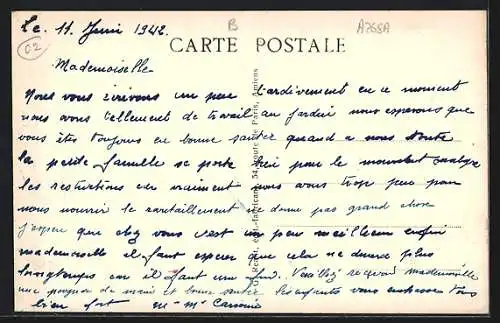 Le 11 Juin 1942.
B
A768A
02
CARTE POSTALE
Mademoiselle
Nous vous écrivons un peu tardivement en ce moment
nous avons tellement de travail au jardin nous esperons que
vous êtes toujours en bonne santée quand a nous toute
la petite famille se porte bien pour le moment malgre
les restrictions car vraiment nous avons trop peu pour
nous nourrir le ravitaillement ne donne pas grand chose
j'espere que chez vous c'est un peu meilleur enfin
mademoiselle il faut esperer que cela ne durera plus
longtemps car il faut une fin. Veuillez recevoir mademoiselle
une poignee de main et bonne santée les enfants vous embrasse tous
bien fort Mr Mme
édit.-fabricant, 54, route de Paris, Amiens